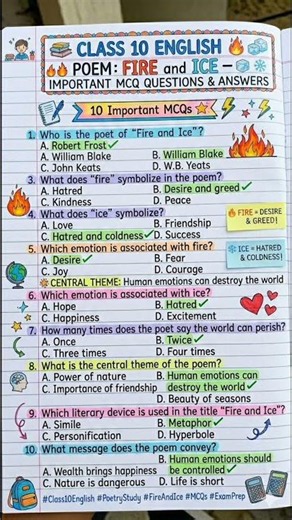 CLASS 10 ENGLISH
POEM: FIRE and ICE –
IMPORTANT MCQ QUESTIONS & ANSWERS
10 Important MCQs
1. Who is the poet of "Fire and Ice"?
A. Robert Frost ✓
A. William Blake B. William Blake ✓
C. John Keats D. W.B. Yeats
3. What does "fire" symbolize in the poem?
A. Hatred B. Desire and greed ✓
C. Kindness D. Peace
4. What does "ice" symbolize?
A. Love B. Friendship
C. Hatred and coldness ✓ D. Success
FIRE = DESIRE
& GREED!
5. Which emotion is associated with fire?
A. Desire ✓ B. Fear
C. Joy D. Courage
ICE = HATRED
& COLDNESS!
CENTRAL THEME: Human emotions can destroy the world
6. Which emotion is associated with ice?
A. Hope B. Hatred ✓
C. Happiness D. Excitement
7. How many times does the poet say the world can perish?
A. Once B. Twice ✓
C. Three times D. Four times
8. What is the central theme of the poem?
A. Power of nature B. Human emotions can
C. Importance of friendship destroy the world ✓
D. Beauty of seasons
9. Which literary device is used in the title "Fire and Ice"?
A. Simile B. Metaphor ✓
C. Personification D. Hyperbole
10. What message does the poem convey?
B. Human emotions should
A. Wealth brings happiness be controlled ✓
C. Nature is dangerous D. Life is short
#Class10English #PoetryStudy #FireAndIce #MCQs #ExamPrep